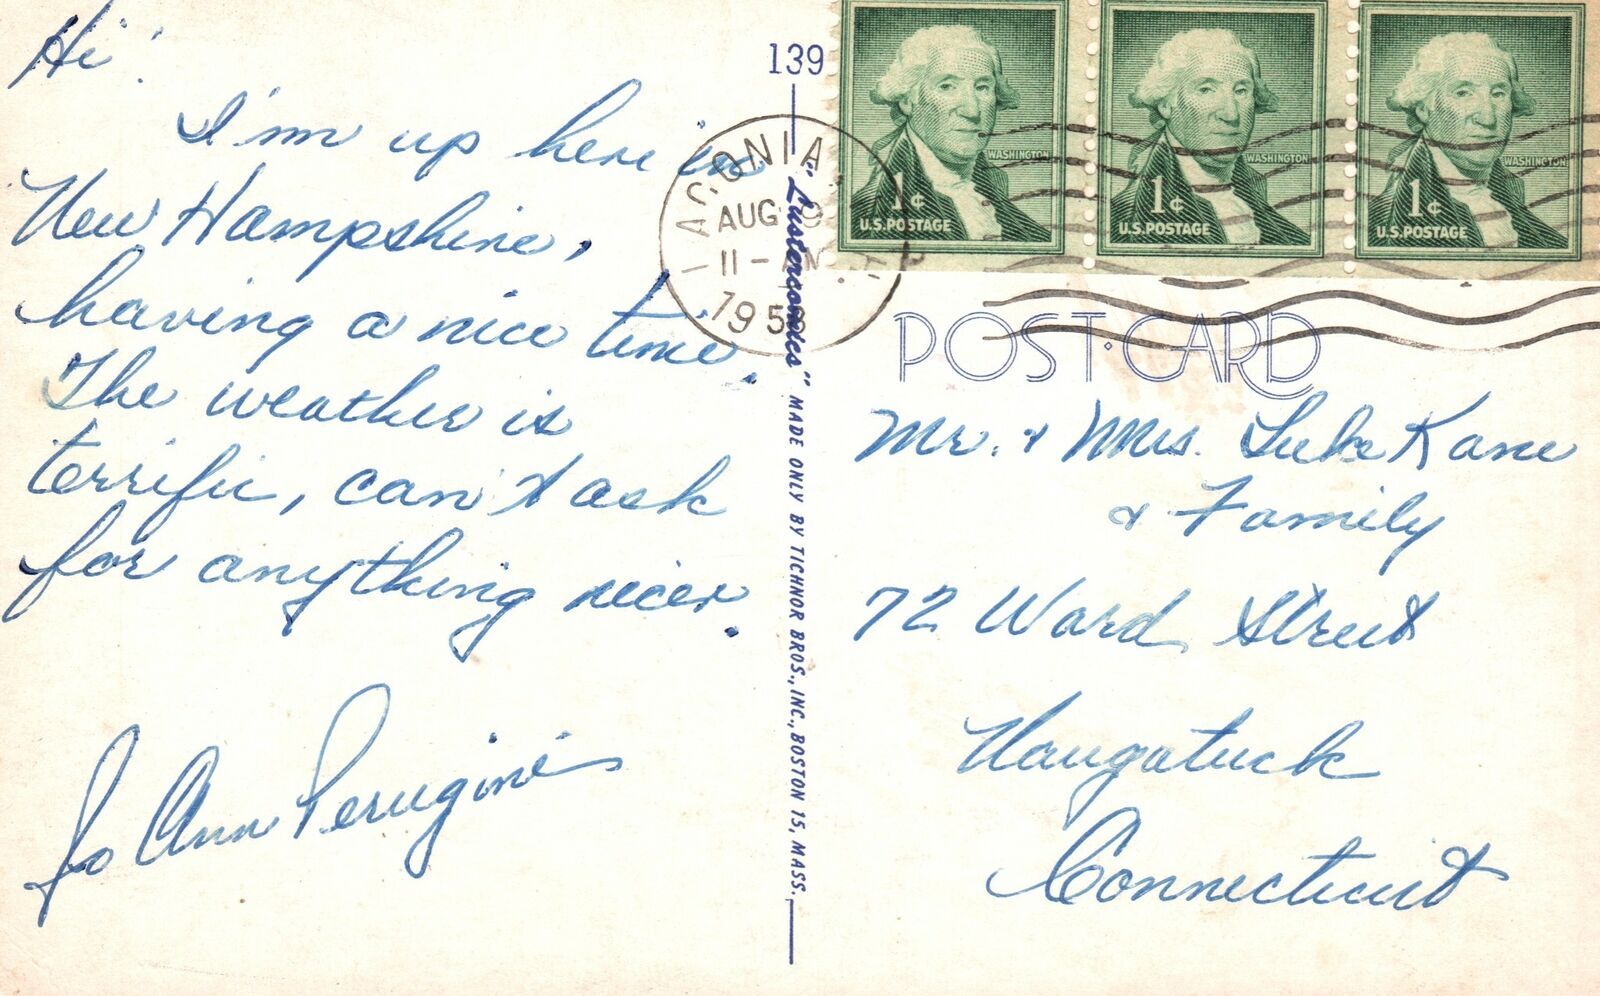 Hi!
I'm up here in
New Hampshire,
having a nice time.
The weather is
terrific, can't ask
for anything nicer.
Jo Ann Perugini
139
"Lustercomies" MADE ONLY BY TICHNOR BROS., INC., BOSTON 15, MASS.
LACONIA
AUG
11 -
195
WASHINGTON
1¢
U.S. POSTAGE
WASHINGTON
1¢
U.S. POSTAGE
WASHINGTON
1¢
U.S. POSTAGE
POST·CARD
Mr. & Mrs. Luke Kane
& Family
72 Ward Street
Naugatuck
Connecticut